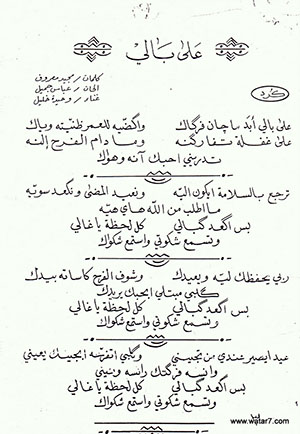 على بالي
كلمات / مجيد معروف
الحان / عباس جميل
غناء / وحيدة خليل
كرد
على بالي أبد ما چان فرگاك وأگضيه للعمر ظنيته وياك
على غفلة تفارگنه وما دام الفرح إلنه
تدريني احبك آنه وهواك
ترجع بالسلامة ايگون اليه ونعيد المضى ونگعد سويه
ما اطلب من الله هاي هيه
بس اگعد گبالي كل لحظة يا غالي
وتسمع شكوتي واستمع شكواك
ربي يحفظك ليه وبعيدك وشوف الفرح كاساته بيدك
گلبي مبتلي ايحبك يريدك
بس اگعد گبالي كل لحظة يا غالي
وتسمع شكوتي واستمع شكواك
عيد ايصير عندي من تجيني وگلبي اتفرسه ايجيك بعيني
وانسه فرگتك رانسه ونيني
بس اگعد گبالي كل لحظة يا غالي
وتسمع شكوتي واستمع شكواك
www.watar7.com